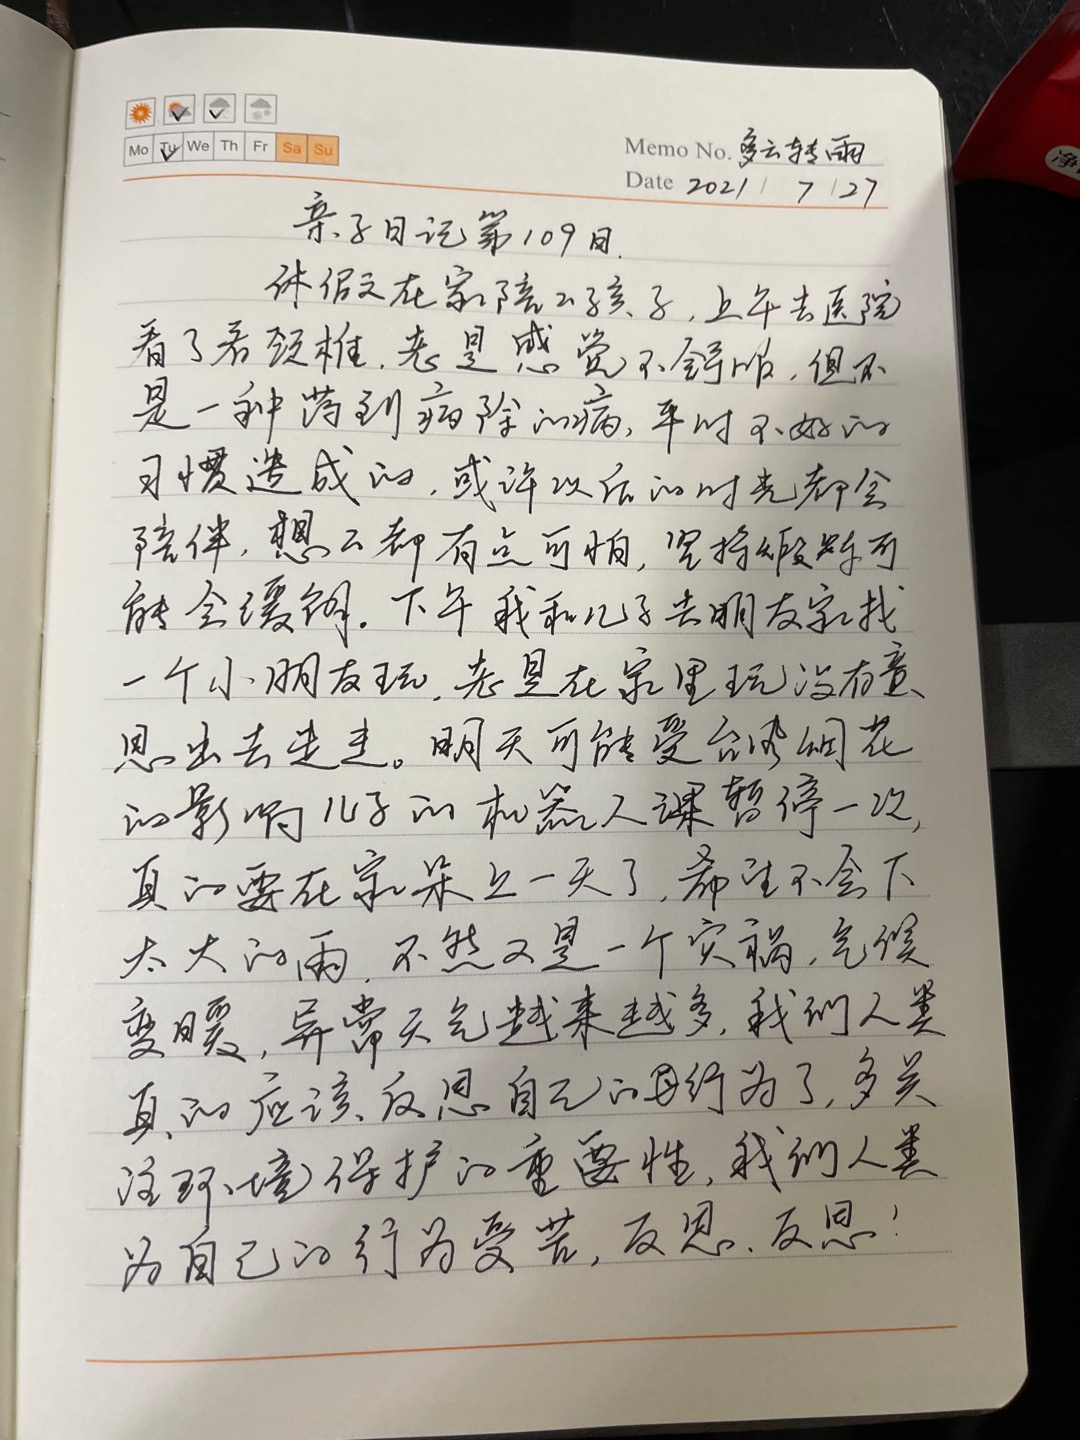 Mo Tu We Th Fr Sa Su
Memo No. 多云转雨
Date 2021 / 7 / 27
亲子日记第109日.
休假又在家陪公孩子,上午去医院
看了看颈椎,老是感觉不舒服,但不
是一种药到病除的病,平时不好的
习惯造成的,或许以后的时光都会
陪伴,想之都有点可怕,坚持锻炼可
能会缓解.下午我和儿子去朋友家找
一个小朋友玩,老是在家里玩没有意
思出去走走。明天可能受台风烟花
的影响儿子的机器人课暂停一次,
真的要在家呆上一天了,希望不会下
太大的雨,不然又是一个灾祸,气候
变暖,异常天气越来越多,我们人类
真的应该反思自己的行为了,多关
注环境保护的重要性,我们人类
为自己的行为受苦,反思、反思!
净